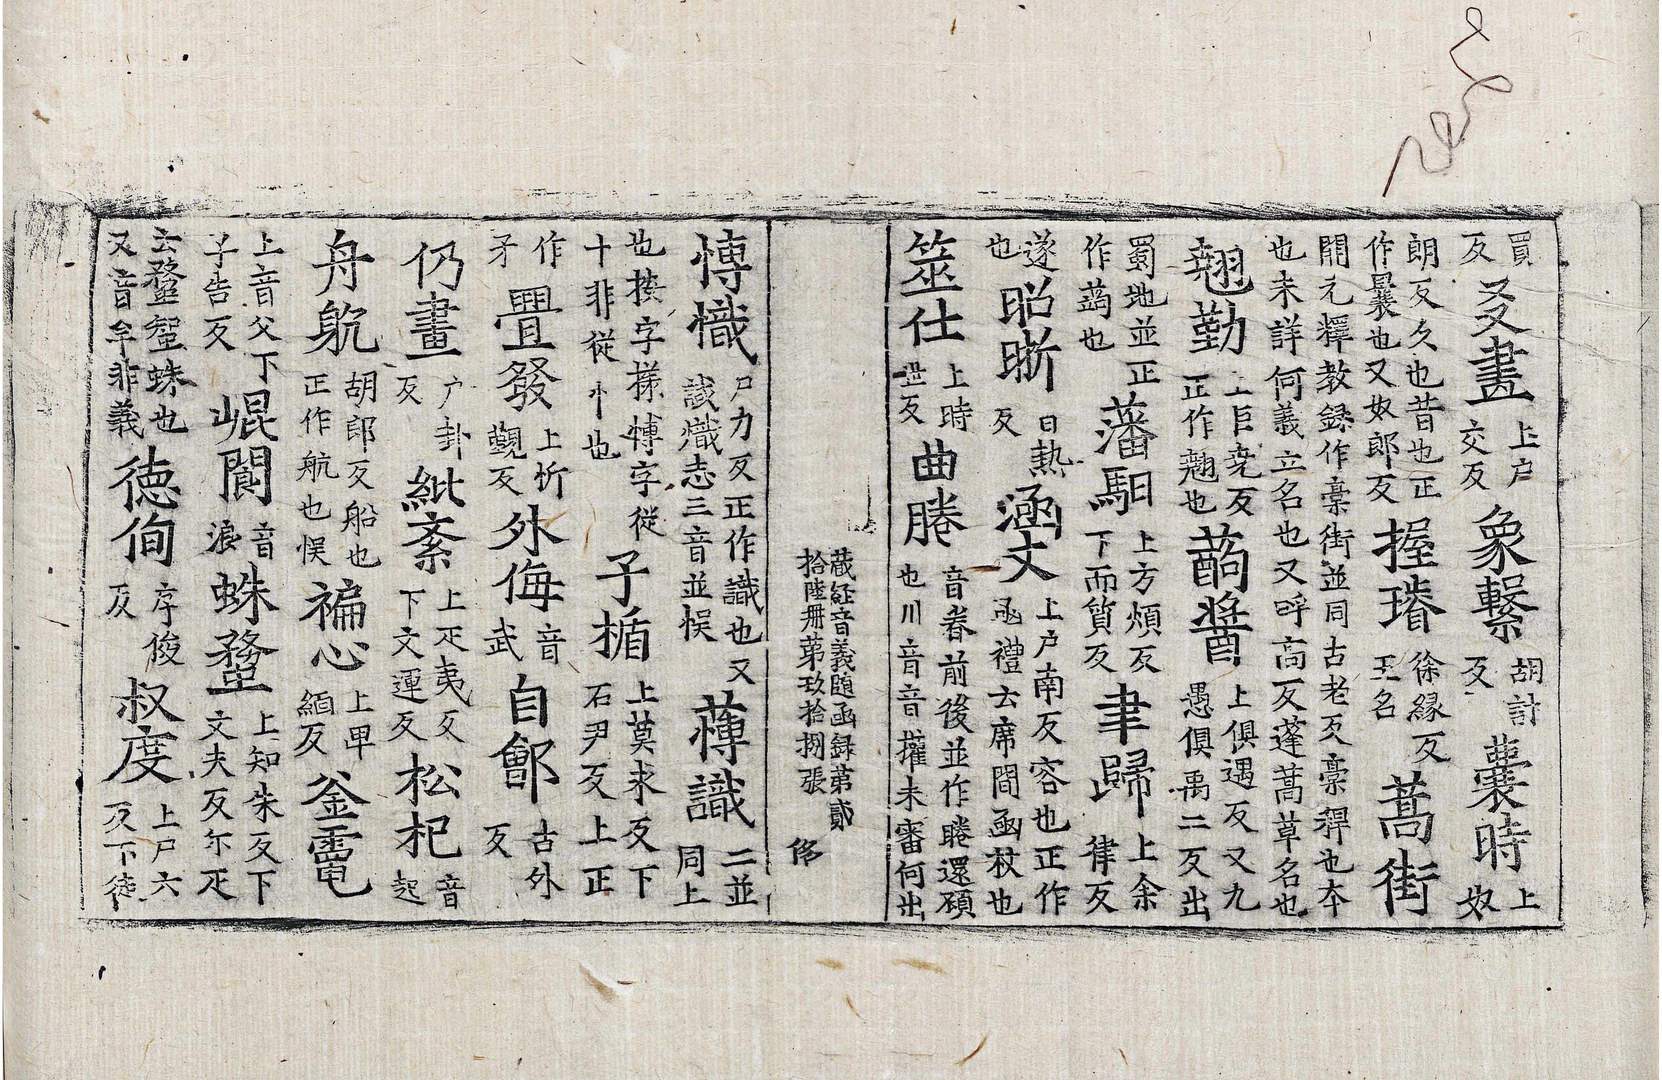 買反爻畫上戶交反象繫胡計反曩時上奴
朗反久也昔也正作曩也又奴郎反握璿徐緣反玉名蒿街
開元釋教録作槀街並同古老反槀稈也夲也未詳何義立名也又呼高反蓬蒿草名也
翹勤上巨尭反正作翹也蒟醬上俱遇反又九愚俱禹二反出
蜀地並正作蒟也藩馹上方煩反下而質反聿歸上余律反
遂也昭晣日熱反涵丈上戶南反容也正作函禮云席間函杖也
筮仕上時世反曲睠音眷前後並作睠還碩也川音音攉未審何出
藏経音義随函録第貳
拾陸冊第玖拾捌張
慱幟尸力反正作識也又試熾志三音並悮薄識二並同上
也揍字様慱字從十非從忄也子楯上莫求反下石尹反上正
作矛疊發上忻覲反外侮音武自鄶古外反
仍畫戶卦反紕紊上疋夷反下文運反松杞音起
舟航胡郎反船也正作航也悮褊心上畢緬反釜竈
上音父下子告反崐閬音浪蛛蝥上知朱反下文夫反尓疋
云蛛也又音牟非義徳徇序俊反叔度上尸六反下徒